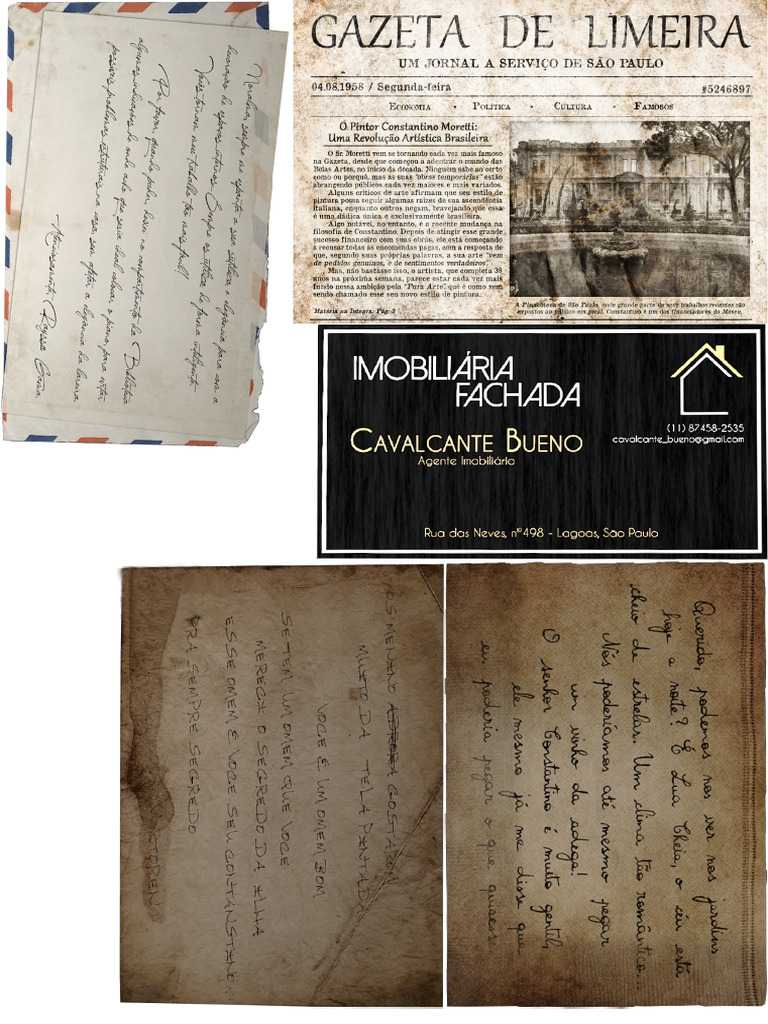 Norativa, sempre me espanta a sua estética e elegância para com a
decoração de espaços internos! Simples estética de forma inteligente.
Vocês tornam meu trabalho tão mais fácil!
Por favor, quando puder, deixe no compartimento da Biblioteca
algumas indicações de onde acha que seria ideal alocar o piano, para evitar
possíveis problemas estruturais na casa, sem afetar a elegância da lareira
Atenciosamente, Rayssa Costa
GAZETA DE LIMEIRA
UM JORNAL A SERVIÇO DE SÃO PAULO
04.08.1958 / Segunda-feira
#5246897
Economia • Política • Cultura • Famosos
O Pintor Constantino Moretti:
Uma Revolução Artística Brasileira
O Sr. Moretti vem se tornando cada vez mais famoso
na Gazeta, desde que começou a adentrar o mundo das
Belas Artes, no início da década. Ninguém sabe ao certo
como ou porquê, mas as suas "obras temporárias" estão
abrangendo públicos cada vez maiores e mais variados.
Alguns críticos de arte afirmam que seu estilo de
pintura possa seguir algumas raízes de sua ascendência
italiana, enquanto outros negam, bravejando que essa
é uma dádiva única e exclusivamente brasileira.
Algo notável, no entanto, é a recente mudança na
filosofia de Constantino. Depois de atingir esse grande
sucesso financeiro com suas obras, ele está começando
a recusar todas as encomendas pagas, com a resposta de
que, segundo suas próprias palavras, a sua arte "vem
de pedidos genuínos, e de sentimentos verdadeiros".
Mas, não bastasse isso, o artista, que completa 38
anos na próxima semana, parece estar cada vez mais
fundo nessa ambição pela "Pura Arte", que é como vem
sendo chamado esse seu novo estilo de pintura.
Matéria na Íntegra: Pág. 3
A Pinacoteca de São Paulo, onde grande parte de seus trabalhos recentes são
expostos ao público em geral. Constantino é um dos financiadores do Museu.
IMOBILIÁRIA
FACHADA
CAVALCANTE BUENO
Agente Imobiliário
(11) 87458-2535
cavalcante_bueno@gmail.com
Rua das Neves, nº498 - Lagoas, São Paulo
OS MENINO GOSTARON
MUNTO DA TELA PINTADA
VOCE E UM OMEM BOM
SE TEM UM OMEM QUE VOCE
MERECE O SEGREDO DA ILHA
ESSE OMEM E VOCE SEU CONTANSTINO
PRA SEMPRE SEGREDO
Querido, podemos nos ver nos jardins
hoje a noite? É Lua Cheia, o céu está
cheio de estrelas. Um clima tão romântico...
Nós poderíamos até mesmo pegar
um vinho da adega!
O senhor Constantino é muito gentil,
ele mesmo já me disse que
eu poderia pegar o que quisesse